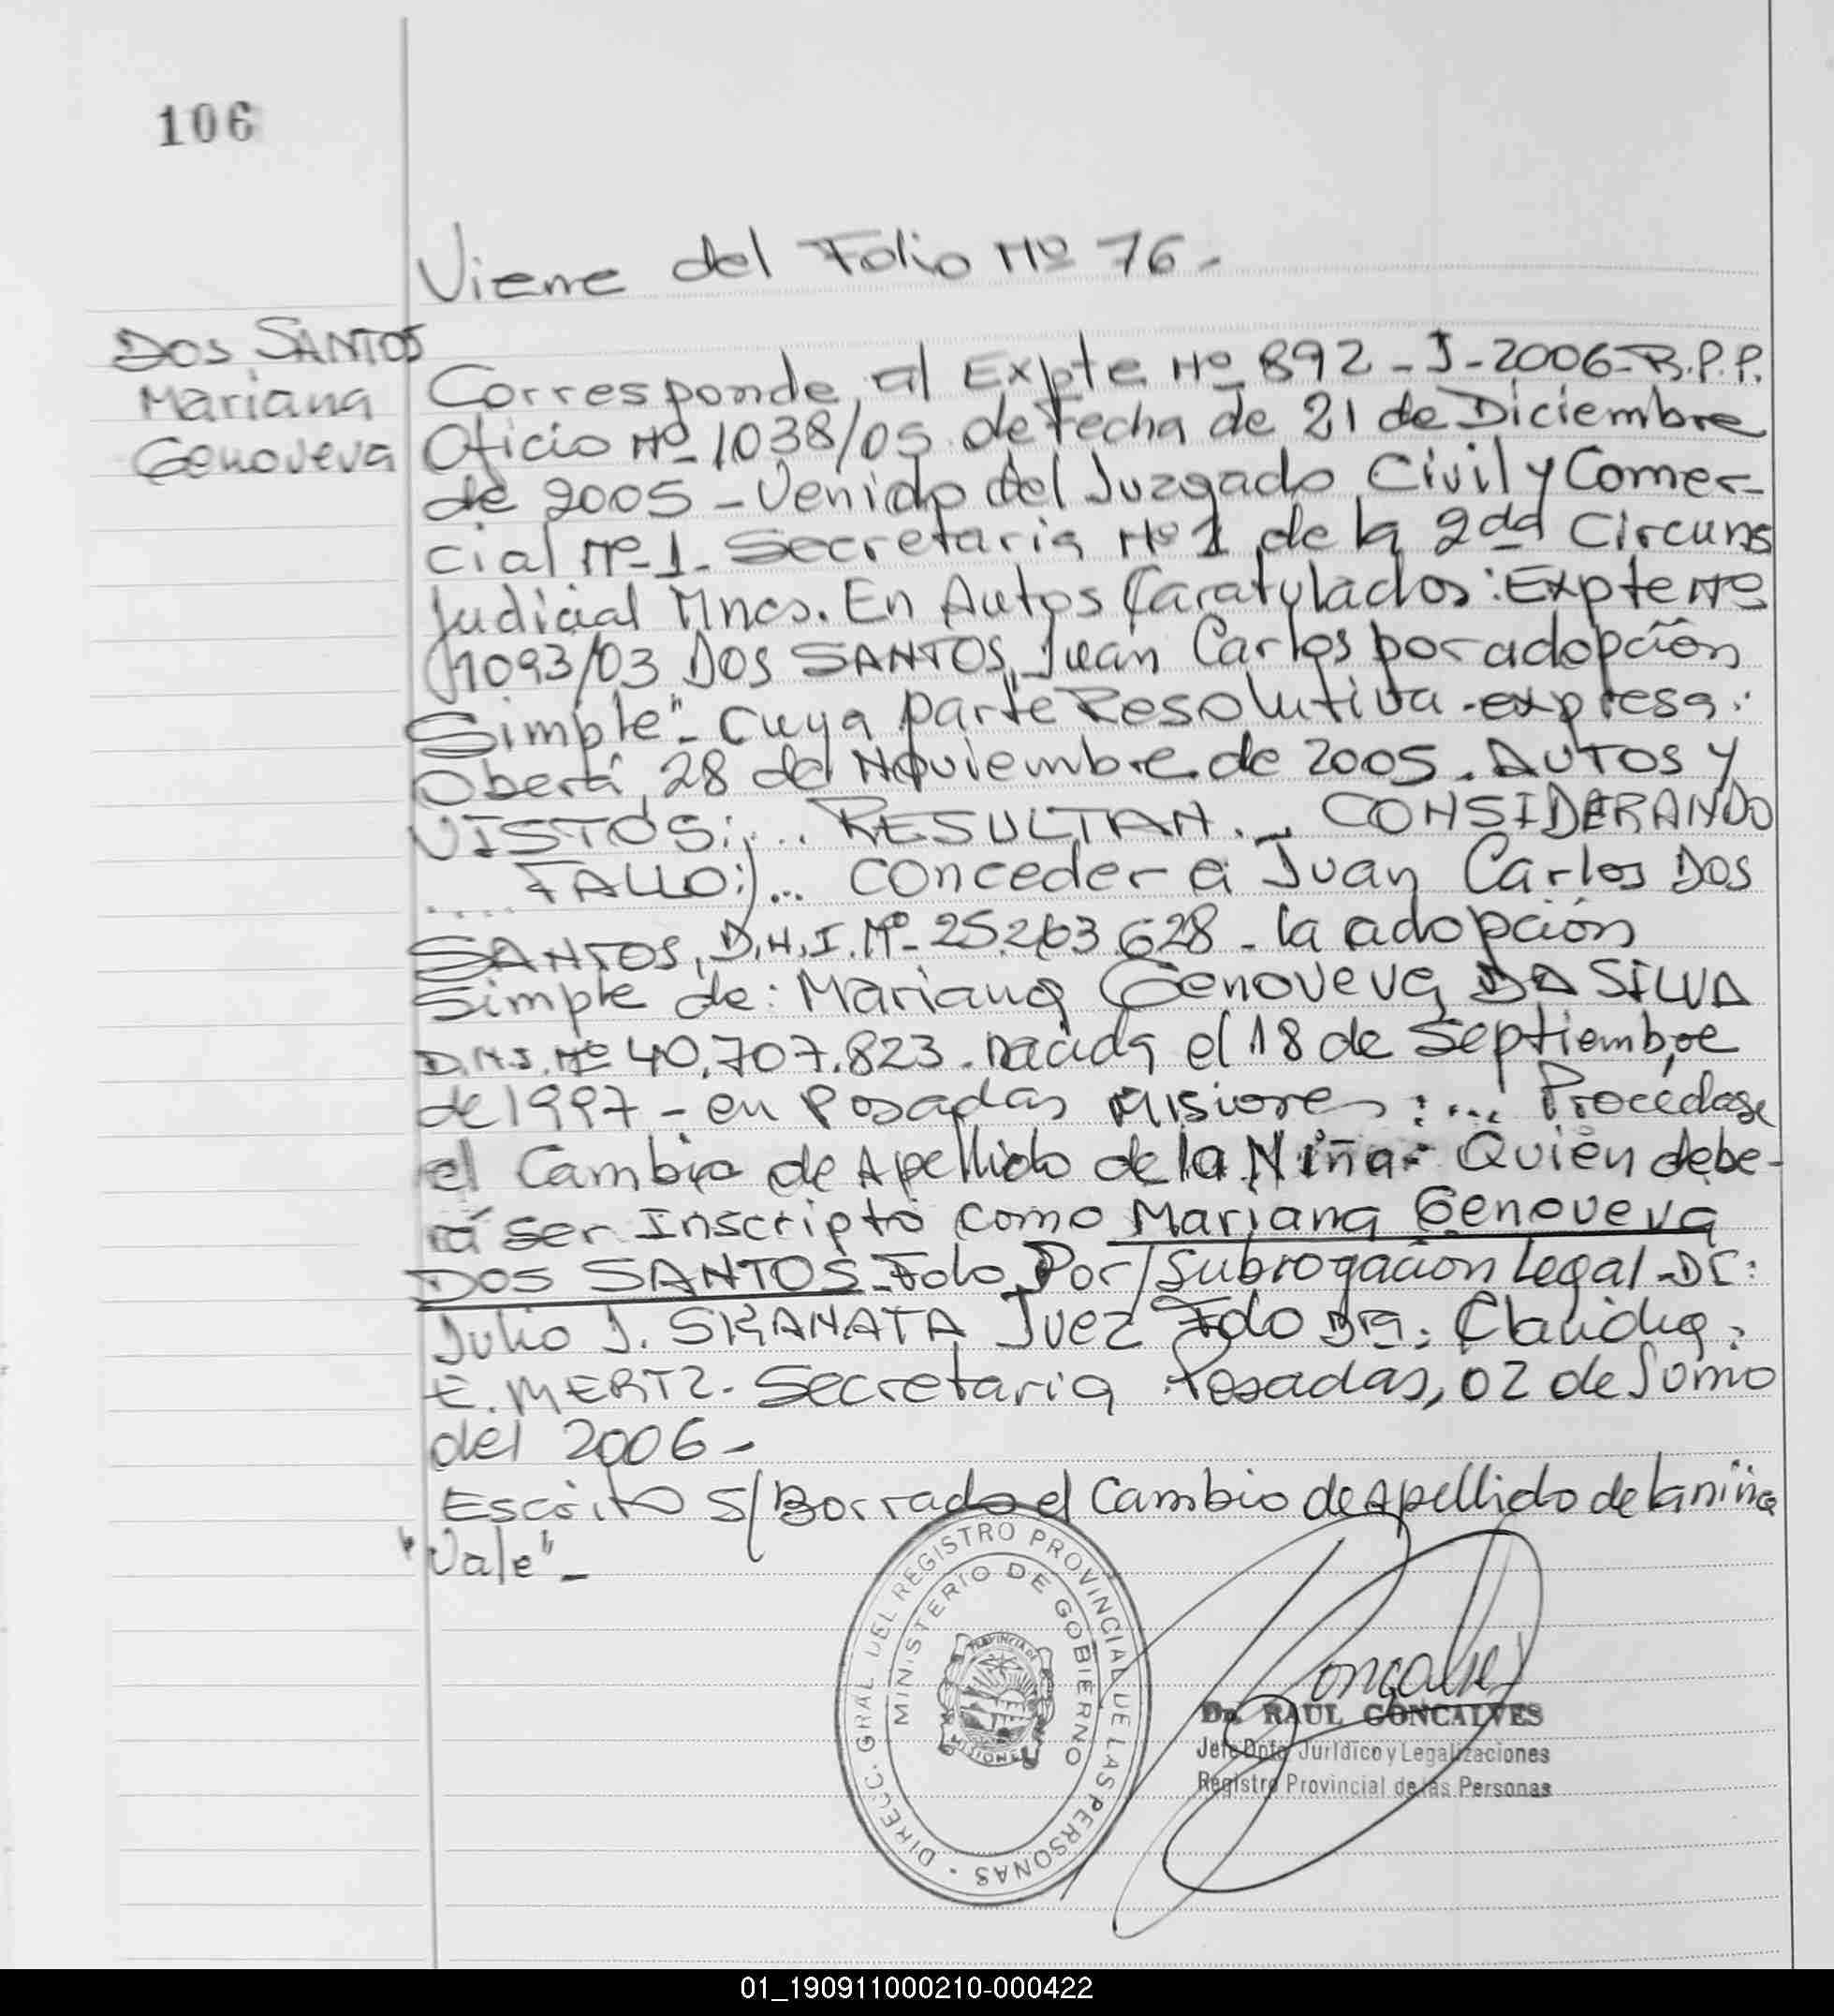 106
Viene del Folio Nº 76-
DOS SANTOS
Mariana
Genoveva
Corresponde al Expte Nº 892-J-2006-R.P.P.
Oficio Nº 1038/05 de Fecha de 21 de Diciembre
de 2005 - Venido del Juzgado Civil y Comer-
cial Nº 1- Secretaria Nº 1 de la 2da Circuns
Judicial Mnes. En Autos Caratulados: Expte Nº
1093/03 DOS SANTOS, Juan Carlos por adopción
Simple"- cuya parte Resolutiva expresa:
Oberá, 28 de Noviembre de 2005. AUTOS Y
VISTOS:... RESULTAN... CONSIDERANDO
..... FALLO:)... conceder a Juan Carlos DOS
SANTOS, D.N.I. Nº- 25.263.628 - la adopción
Simple de: Mariana Genoveva DA SILVA
D.N.I. Nº 40.707.823. nacida el 18 de Septiembre
de 1997 - en Posadas Misiones:... Procédase
el Cambio de Apellido de la Niña- Quién debe-
rá ser Inscripto como Mariana Genoveva
DOS SANTOS-Fdo Por/Subrogación Legal-Dr:
Julio J. SKANATA Juez Fdo Dra: Claudia.
E. MERTZ- Secretaria Posadas, 02 de Junio
del 2006-
Escrito S/Borrado el Cambio de Apellido de la niña
"Vale"-
DIRECC. GRAL DEL REGISTRO PROVINCIAL DE LAS PERSONAS -
MINISTERIO DE GOBIERNO
PROVINCIA DE
MISIONES
Goncalves
Dr. RAUL GONCALVES
Jefe Dpto Jurídico y Legalizaciones
Registro Provincial de las Personas
01_190911000210-000422